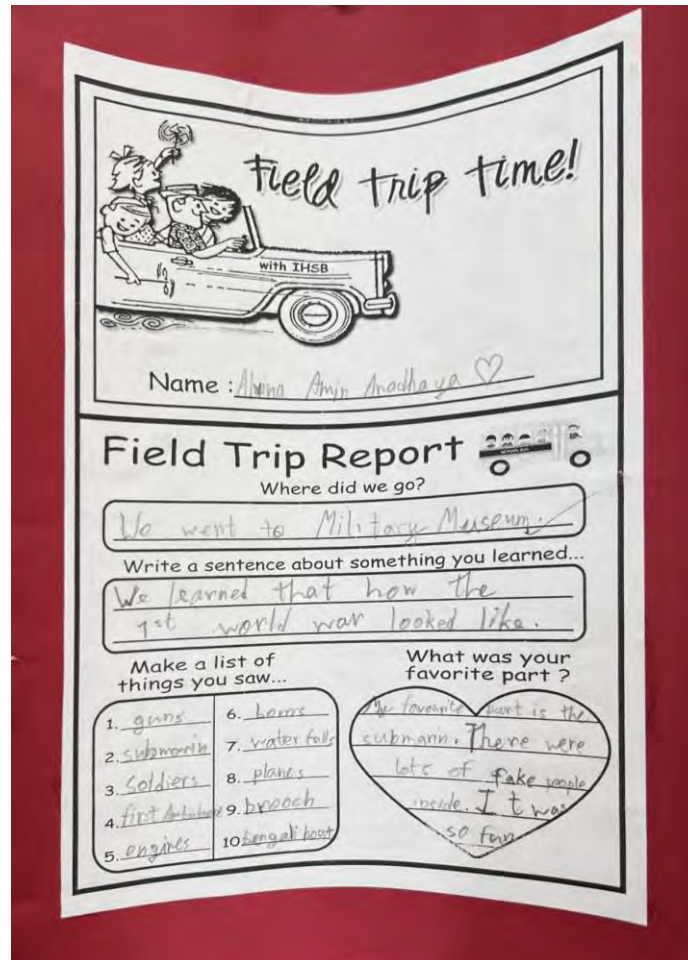 Field trip time!
with IHSB
Name : Amin Anadhaya
Field Trip Report
SCHOOL BUS
Where did we go?
We went to Military Museum.
Write a sentence about something you learned...
We learned that how the
1st world war looked like.
Make a list of
things you saw...
1. guns
2. submarrin
3. Soldiers
4. first Ambulance
5. engines
6. boms
7. water falls
8. planes
9. brooch
10. bengali boat
What was your
favorite part ?
My favourite part is the
submarin. There were
lots of fake people
inside. It was
so fun